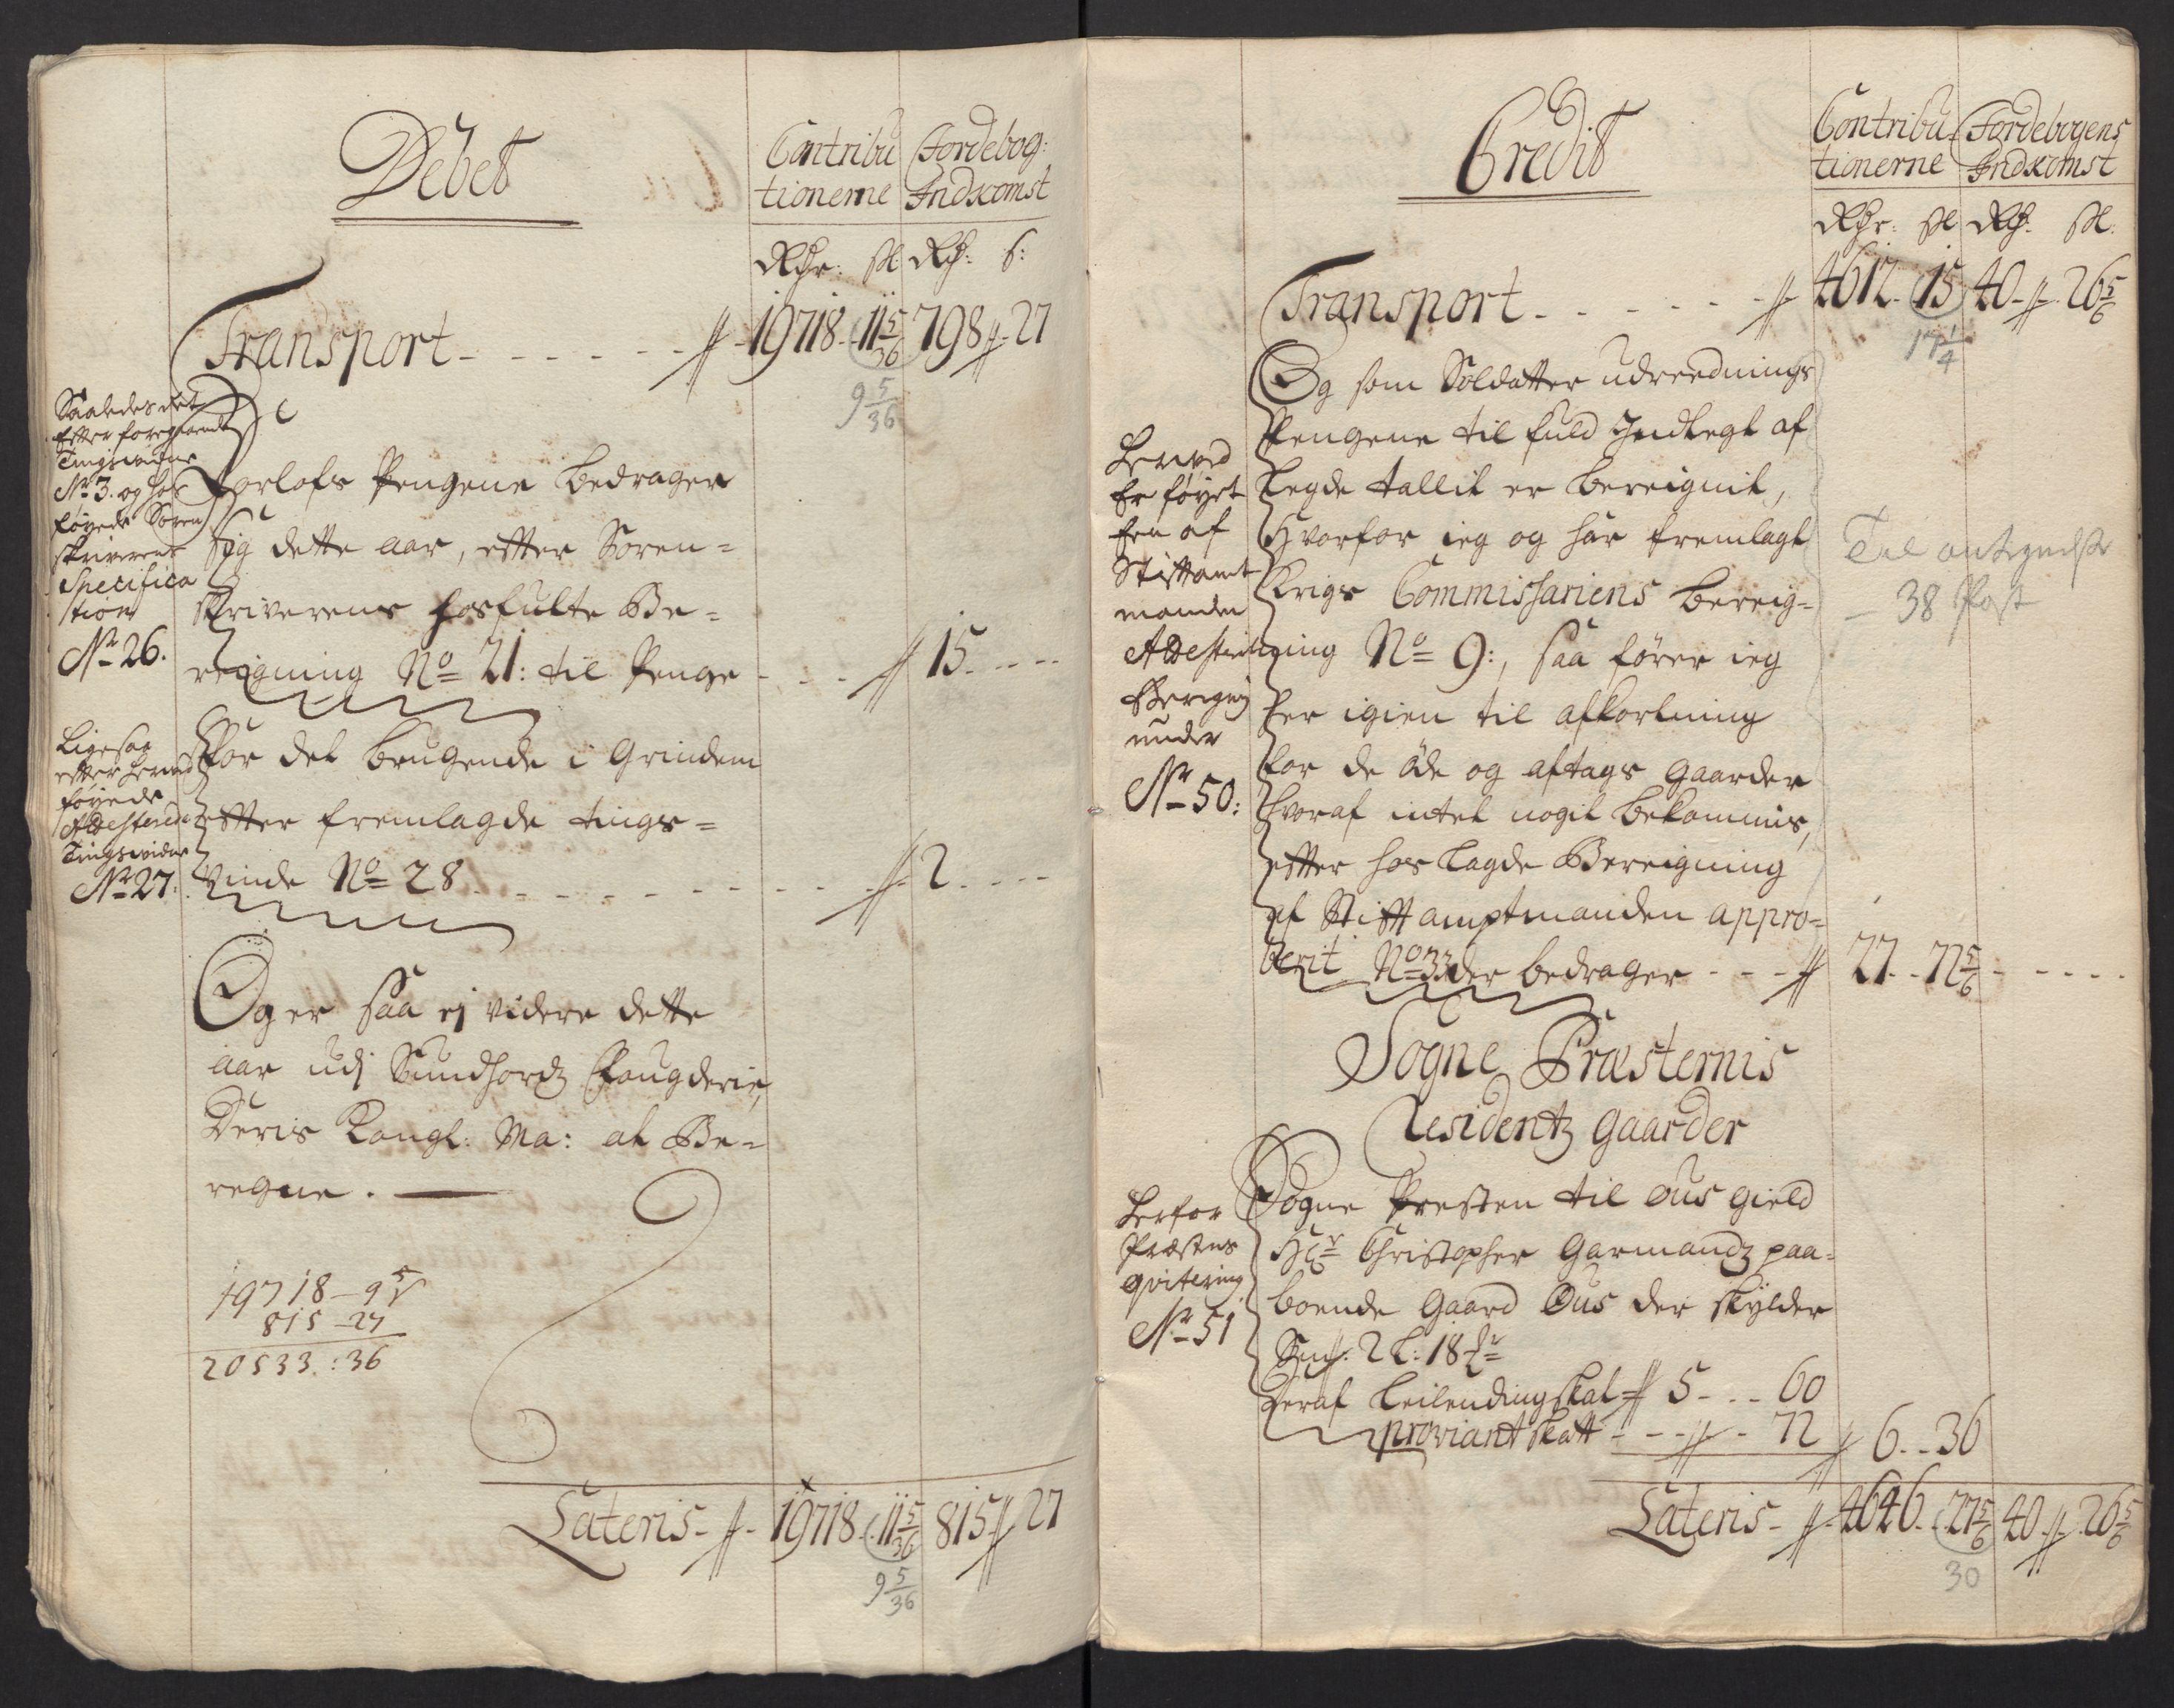 Debet
Contribu
tionerne
Jordebog:
Indkomst
Rdr: sk: Rd: s:
Transport - - - - - - - 19718 - 11 5/36 798 - 27
9 5/36
Saaledes det
efter foregaaende
Tingsvidne
No 3. og hos
føyede Soren
skriverens
Specifica
tion
No 26.
Forlofs Pengene bedrager
sig dette aar, efter Soren=
skriverens hosfulte Be=
reigning No 21: til Penge - - - 15 - - -
Ligesaa
efter herved
føyede
Tingsvidne
No 27:
For det brugende i Grindem
efter fremlagde tings=
Vinde No 28 - - - - - - - - 2 - - -
Og er saa ej videre dette
aar udj Sundhordz Fougderie,
Deris Kongl: Ma: at Be=
regne. —
19718 - 9 5
815 - 27
20533 : 36
Lateris - 19718 - 11 5/36 815 - 27
9 5/36
Credit
Contribu
tionerne
Jordebogens
Indkomst
Rdr: sk Rd: sk.
Transport - - - - - - 4612 - 15 40 - 26 5/6
17 1/4
Og som Soldatter udreednings
Pengene til fuld Indtegt af
Legde tallit er bereignit,
Hvorfor ieg og har fremlagt
Krigs Commissariens bereig=
ning No 9:, saa fører ieg
her igien til afkortning
for de øde og aftags gaarder
hvoraf intet nogit bekommis,
efter hos lagde Bereigning
af Stifft amptmanden appro=
berit No 33 der bedrager - - - 27 - 72 5/6 - - - -
Herved
er føyet
een af
Stiftamt
manden
under
No 50:
Til
38 Post
Sogne Præsternis
Residentz gaarder
Herfor
Præstens
qvitering
No 51
Sogne Presten til Ous gield
Hr Christopher Garmandz paa=
boende Gaard Ous der skylder
Smss. 2 L: 18
Deraf Leilending skat 5 - - - 60
proviant skatt - - - 72 6 - - 36
Lateris - 4646 - 27 5/6 40 - 26 5/6
30